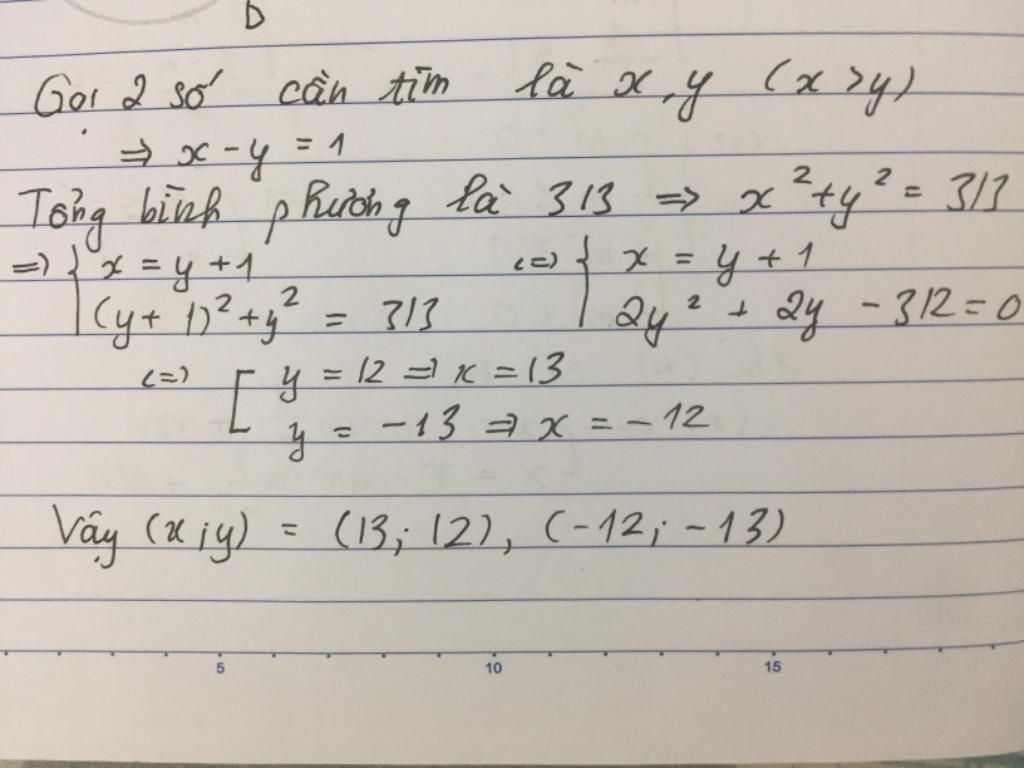 D
Gọi 2 số cần tìm là x, y (x > y)
⇒ x - y = 1
Tổng bình phương là 313 ⇒ x² + y² = 313
⇒ { x = y + 1 <=> { x = y + 1
(y + 1)² + y² = 313 2y² + 2y - 312 = 0
<=> [ y = 12 ⇒ x = 13
y = -13 ⇒ x = -12
Vậy (x; y) = (13; 12), (-12; -13)
5 10 15